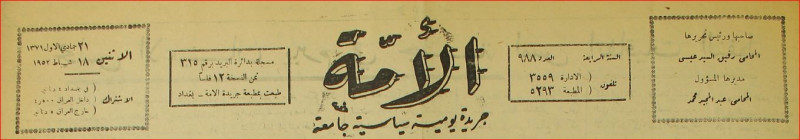 صاحبها ورئيس تحريرها
المحامي رفيق السيد عيسى
مديرها المسؤول
المحامي عبد المجيد محمد
السنة الرابعة العدد ٩٨٨
تلفون ( الادارة ٣٥٥٩
المطبعة ٥٢٩٣
الأمّة
جريدة يومية سياسية جامعة
مسجلة بدائرة البريد برقم ٣١٥
ثمن النسخة ١٢ فلسا
طبعت بمطبعة جريدة الامة - بغداد
الاثنين
٢١ جمادي الاول ١٣٧١
١٨ شباط ١٩٥٢
الاشتراك
في بغداد
داخل العراق
خارج العراق